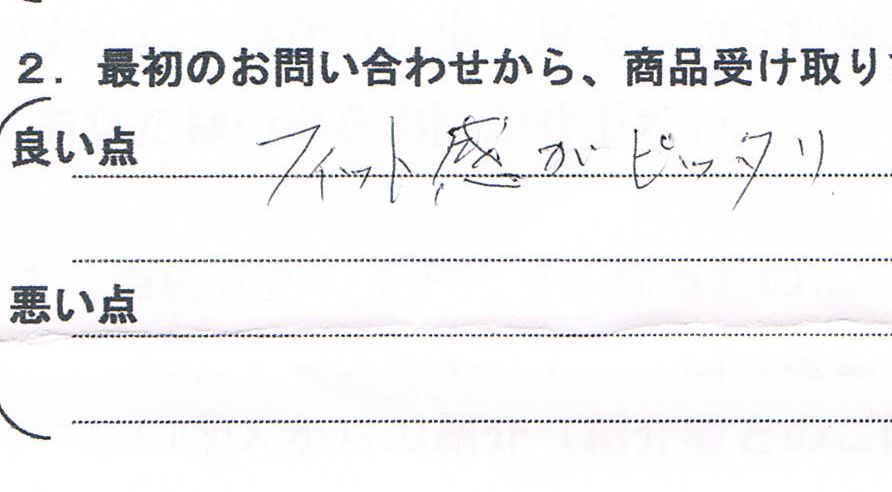 2. 最初のお問い合わせから、商品受け取り
良い点
フィット感がピッタリ
悪い点